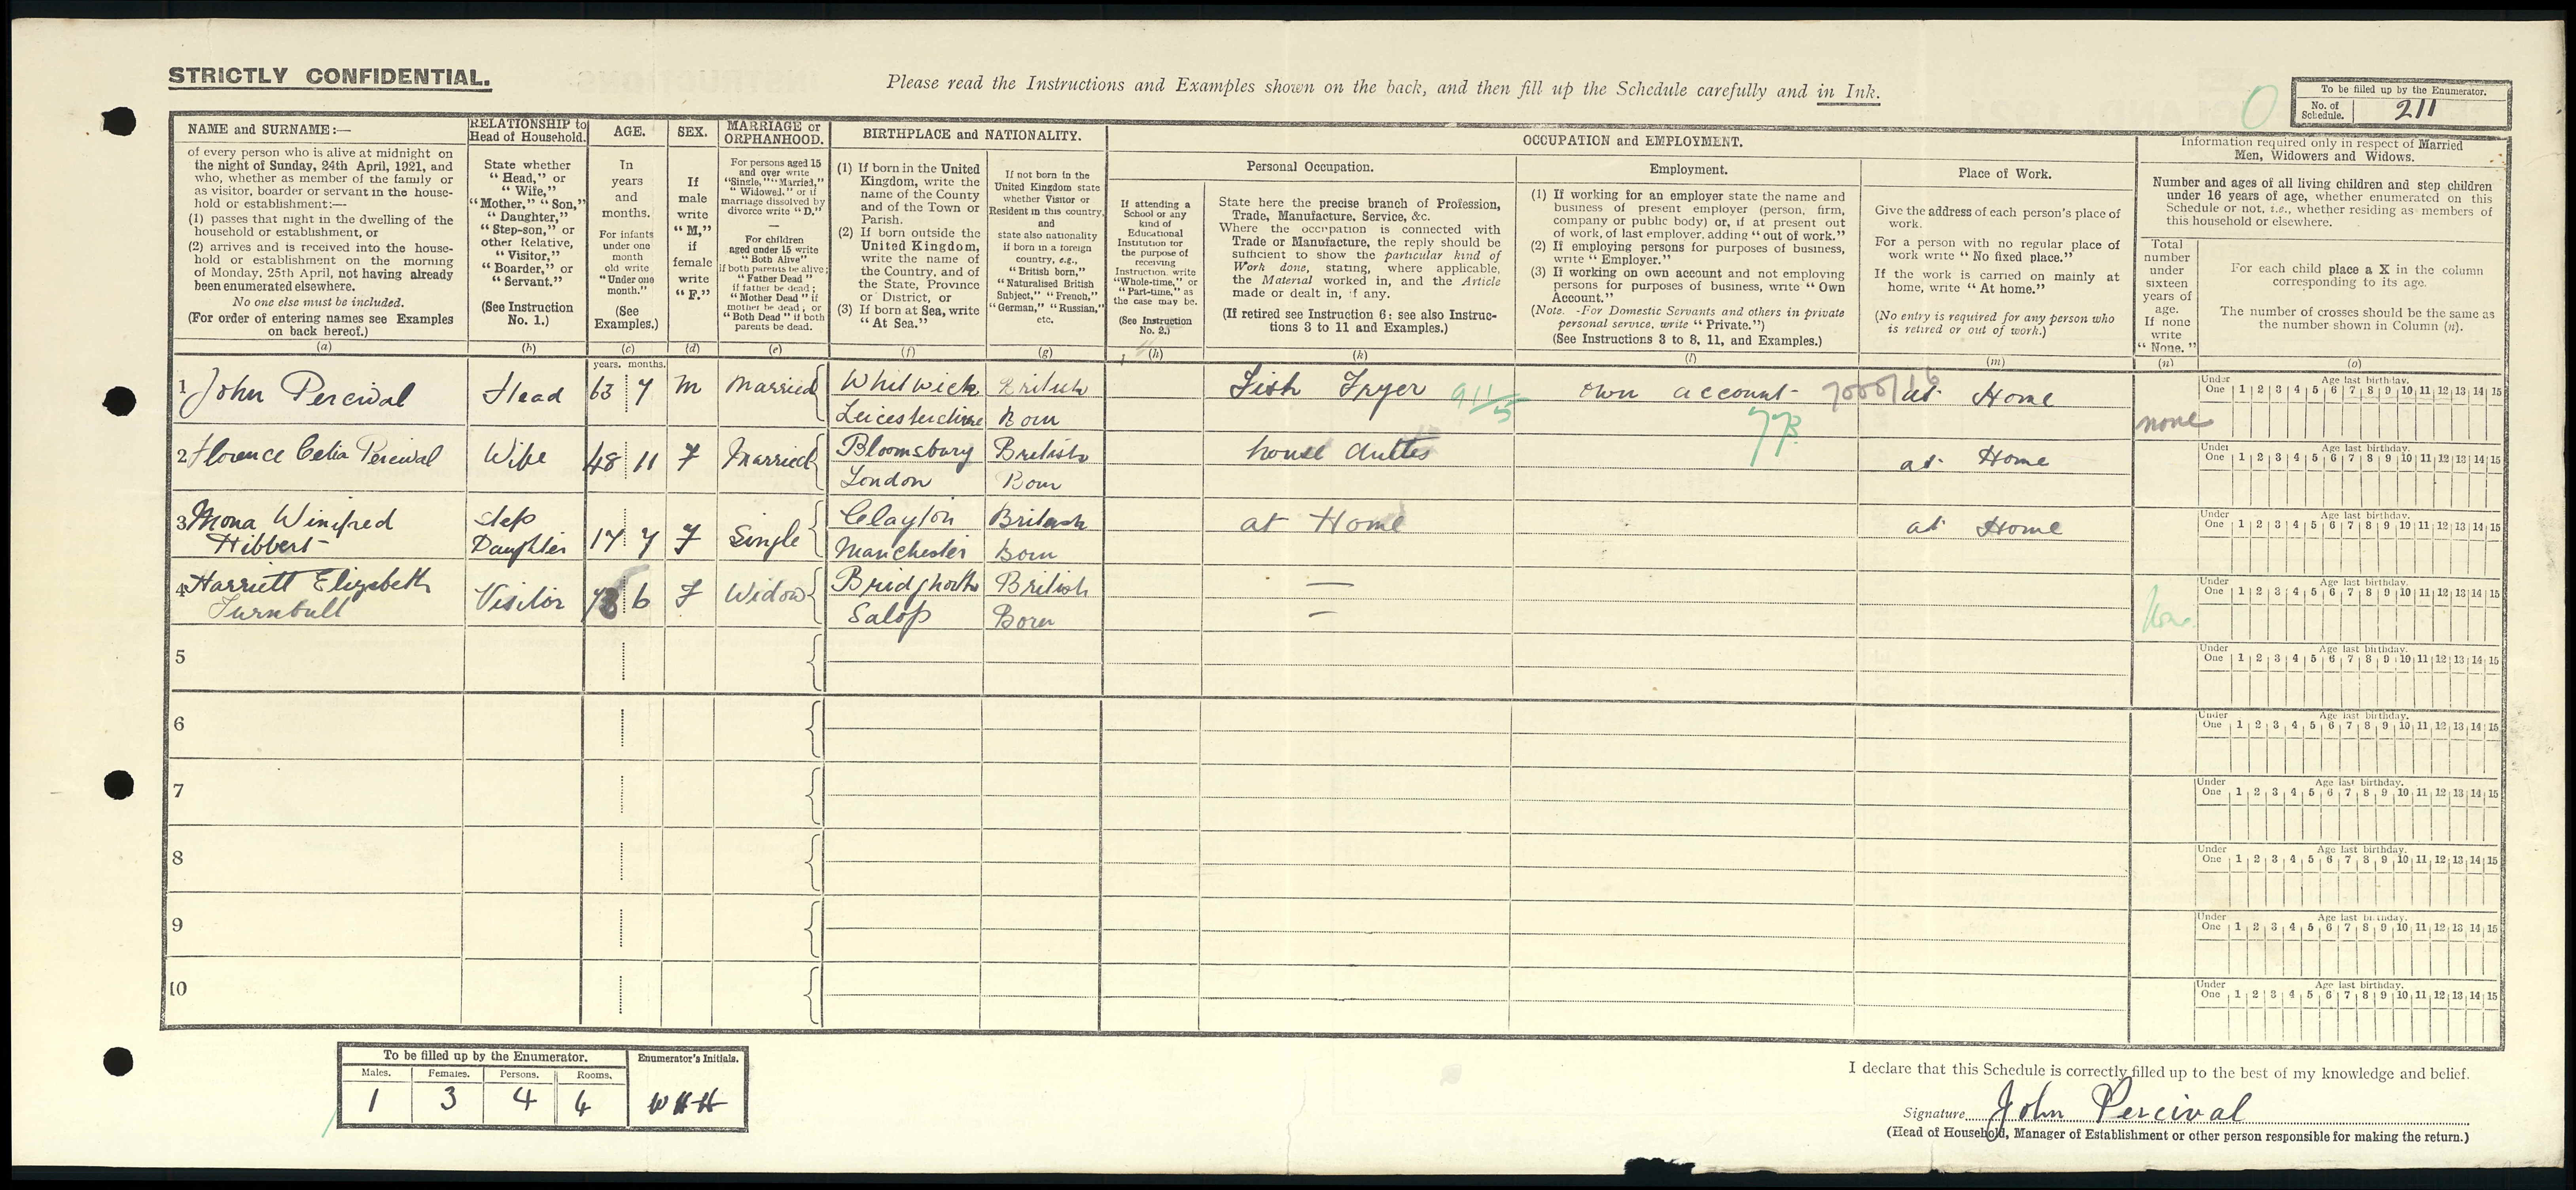 STRICTLY CONFIDENTIAL.
Please read the Instructions and Examples shown on the back, and then fill up the Schedule carefully and in Ink.
To be filled up by the Enumerator.
No. of Schedule. 211
NAME and SURNAME:—
of every person who is alive at midnight on
the night of Sunday, 24th April, 1921, and
who, whether as member of the family or
as visitor, boarder or servant in the house-
hold or establishment:—
(1) passes that night in the dwelling of the
household or establishment, or
(2) arrives and is received into the house-
hold or establishment on the morning
of Monday, 25th April, not having already
been enumerated elsewhere.
No one else must be included.
(For order of entering names see Examples
on back hereof.)
(a)
RELATIONSHIP to
Head of Household.
State whether
"Head," or
"Wife,"
"Mother," "Son,"
"Daughter,"
"Step-son," or
other Relative,
"Visitor,"
"Boarder," or
"Servant."
(See Instruction
No. 1.)
(b)
AGE.
In
years
and
months.
For infants
under one
month
old write
"Under one
month."
(See
Examples.)
(c)
years. months.
SEX.
If
male
write
"M,"
if
female
write
"F."
(d)
MARRIAGE or
ORPHANHOOD.
For persons aged 15
and over write
"Single," "Married,"
"Widowed," or if
marriage dissolved by
divorce write "D."
—
For children
aged under 15 write
"Both Alive"
if both parents be alive;
"Father Dead"
if father be dead;
"Mother Dead" if
mother be dead; or
"Both Dead" if both
parents be dead.
(e)
BIRTHPLACE and NATIONALITY.
(1) If born in the United
Kingdom, write the
name of the County
and of the Town or
Parish.
(2) If born outside the
United Kingdom,
write the name of
the Country, and of
the State, Province
or District, or
(3) If born at Sea, write
"At Sea."
(f)
If not born in the
United Kingdom state
whether Visitor or
Resident in this country,
and
state also nationality
if born in a foreign
country, e.g.,
"British born,"
"Naturalised British
Subject," "French,"
"German," "Russian,"
etc.
(g)
OCCUPATION and EMPLOYMENT.
If attending a
School or any
kind of
Educational
Institution for
the purpose of
receiving
Instruction, write
"Whole-time," or
"Part-time," as
the case may be.
(See Instruction
No. 2.)
(h)
Personal Occupation.
State here the precise branch of Profession,
Trade, Manufacture, Service, &c.
Where the occupation is connected with
Trade or Manufacture, the reply should be
sufficient to show the particular kind of
Work done, stating, where applicable,
the Material worked in, and the Article
made or dealt in, if any.
(If retired see Instruction 6: see also Instruc-
tions 3 to 11 and Examples.)
(k)
Employment.
(1) If working for an employer state the name and
business of present employer (person, firm,
company or public body) or, if at present out
of work, of last employer, adding "out of work."
(2) If employing persons for purposes of business,
write "Employer."
(3) If working on own account and not employing
persons for purposes of business, write "Own
Account."
(Note. -For Domestic Servants and others in private
personal service, write "Private.")
(See Instructions 3 to 8, 11, and Examples.)
(l)
Place of Work.
Give the address of each person's place of
work.
For a person with no regular place of
work write "No fixed place."
If the work is carried on mainly at
home, write "At home."
(No entry is required for any person who
is retired or out of work.)
(m)
Information required only in respect of Married
Men, Widowers and Widows.
Number and ages of all living children and step children
under 16 years of age, whether enumerated on this
Schedule or not, i.e., whether residing as members of
this household or elsewhere.
Total
number
under
sixteen
years of
age.
If none
write
"None."
(n)
For each child place a X in the column
corresponding to its age.
The number of crosses should be the same as
the number shown in Column (n).
(o)
1 John Percival Head 63 7 M Married Whitwick British Fish Fryer 911/5 own account at Home
Leicestershire Born none
Under One Age last birthday. 1 2 3 4 5 6 7 8 9 10 11 12 13 14 15
2 Florence Celia Percival Wife 48 11 F Married Bloomsbury British house duties at Home
London Born
Under One Age last birthday. 1 2 3 4 5 6 7 8 9 10 11 12 13 14 15
3 Mona Winifred step 17 7 F Single Clayton British at Home at Home
Hibbert Daughter Manchester Born
Under One Age last birthday. 1 2 3 4 5 6 7 8 9 10 11 12 13 14 15
4 Harriett Elizabeth Visitor 6 F Widow Bridgnorth British —
Turnbull Salop Born —
Under One Age last birthday. 1 2 3 4 5 6 7 8 9 10 11 12 13 14 15
5
Under One Age last birthday. 1 2 3 4 5 6 7 8 9 10 11 12 13 14 15
6
Under One Age last birthday. 1 2 3 4 5 6 7 8 9 10 11 12 13 14 15
7
Under One Age last birthday. 1 2 3 4 5 6 7 8 9 10 11 12 13 14 15
8
Under One Age last birthday. 1 2 3 4 5 6 7 8 9 10 11 12 13 14 15
9
Under One Age last birthday. 1 2 3 4 5 6 7 8 9 10 11 12 13 14 15
10
Under One Age last birthday. 1 2 3 4 5 6 7 8 9 10 11 12 13 14 15
To be filled up by the Enumerator. Enumerator's Initials.
Males. Females. Persons. Rooms.
1 3 4 4 WHH
I declare that this Schedule is correctly filled up to the best of my knowledge and belief.
Signature John Percival
(Head of Household, Manager of Establishment or other person responsible for making the return.)